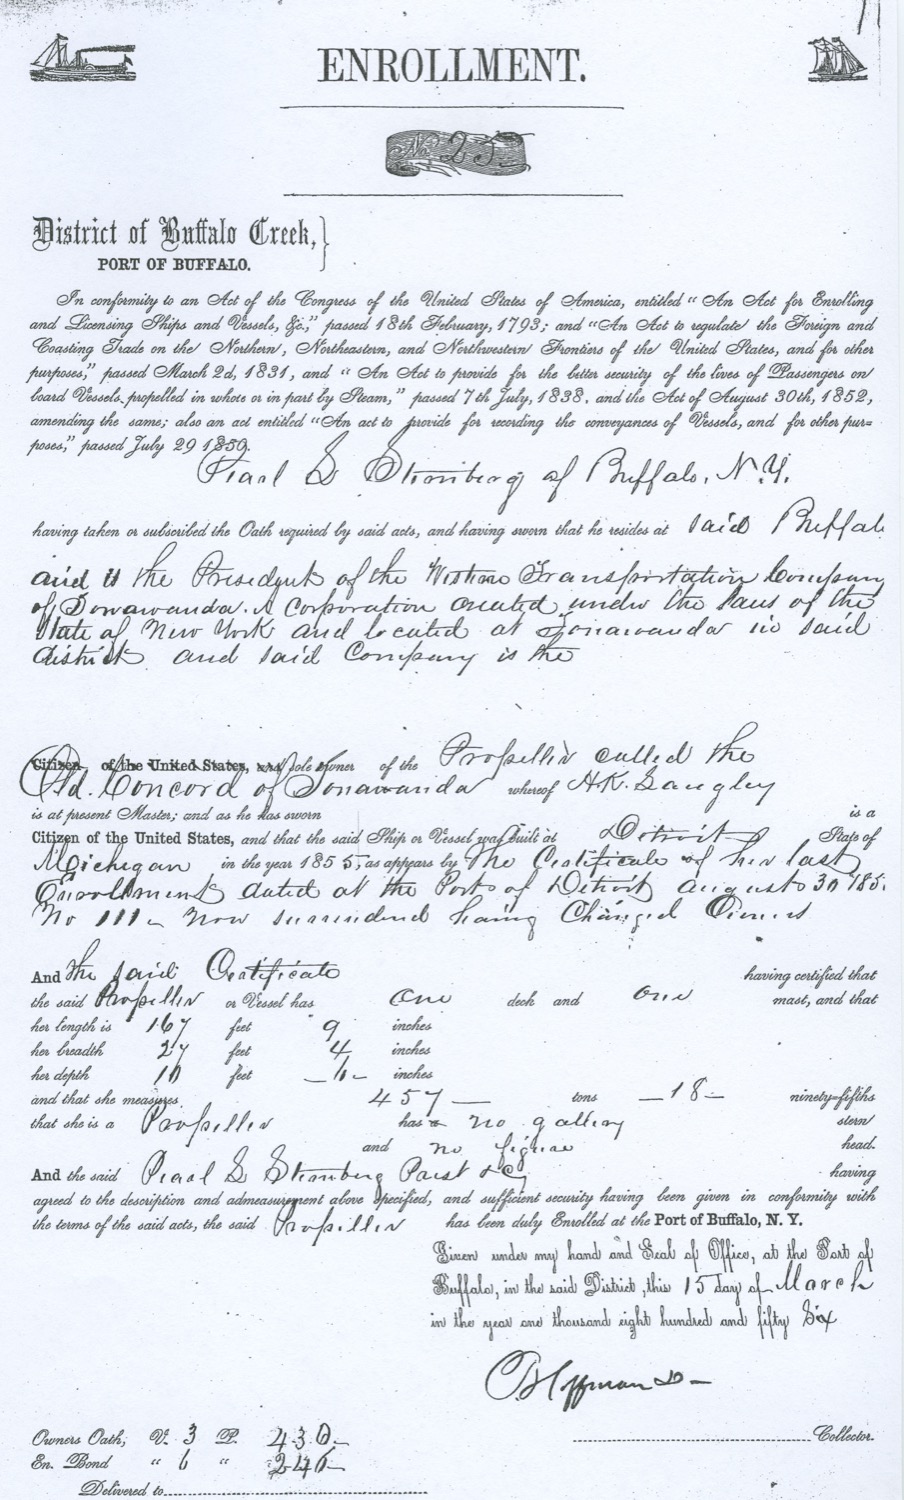 ENROLLMENT.
No 25
District of Buffalo Creek,
PORT OF BUFFALO.
In conformity to an Act of the Congress of the United States of America, entitled "An Act for Enrolling
and Licensing Ships and Vessels, &c.," passed 18th February, 1793; and "An Act to regulate the Foreign and
Coasting Trade on the Northern, Northeastern, and Northwestern Frontiers of the United States, and for other
purposes," passed March 2d, 1831, and "An Act to provide for the better security of the lives of Passengers on
board Vessels propelled in whole or in part by Steam," passed 7th July, 1838. and the Act of August 30th, 1852,
amending the same; also an act entitled "An act to provide for recording the conveyances of Vessels, and for other pur=
poses," passed July 29 1850.
Pearl L Sternberg of Buffalo, N.Y.
having taken or subscribed the Oath required by said acts, and having sworn that he resides at said Buffalo
and is the President of the Western Transportation Company
of Tonawanda. A corporation created under the laws of the
State of New York and located at Tonawanda in said
district and said Company is the
Citizen of the United States, sole owner of the Propeller called the
Old. Concord of Tonawanda whereof H.K. Langley
is at present Master; and as he has sworn is a
Citizen of the United States, and that the said Ship or Vessel was built at Detroit State of
Michigan in the year 1855, as appears by The Certificate of her last
Enrollment dated at the Port of Detroit august 30 185
No 111 now surrendered having Changed Owners
And the said Certificate having certified that
the said Propeller or Vessel has one deck and one mast, and that
her length is 167 feet 9 inches
her breadth 27 feet 4 inches
her depth feet inches
and that she measures 457 tons 18 ninety=fifths
that she is a Propeller has no gallery stern
and no figure head.
And the said Pearl L Sternberg Prest &c having
agreed to the description and admeasurement above specified, and sufficient security having been given in conformity with
the terms of the said acts, the said Propeller has been duly Enrolled at the Port of Buffalo, N. Y.
Given under my hand and Seal of Office, at the Port of
Buffalo, in the said District, this 15 day of March
in the year one thousand eight hundred and fifty Six
Collector.
Owners Oath, V. 3 P. 430
En. Bond " 6 " 246
Delivered to